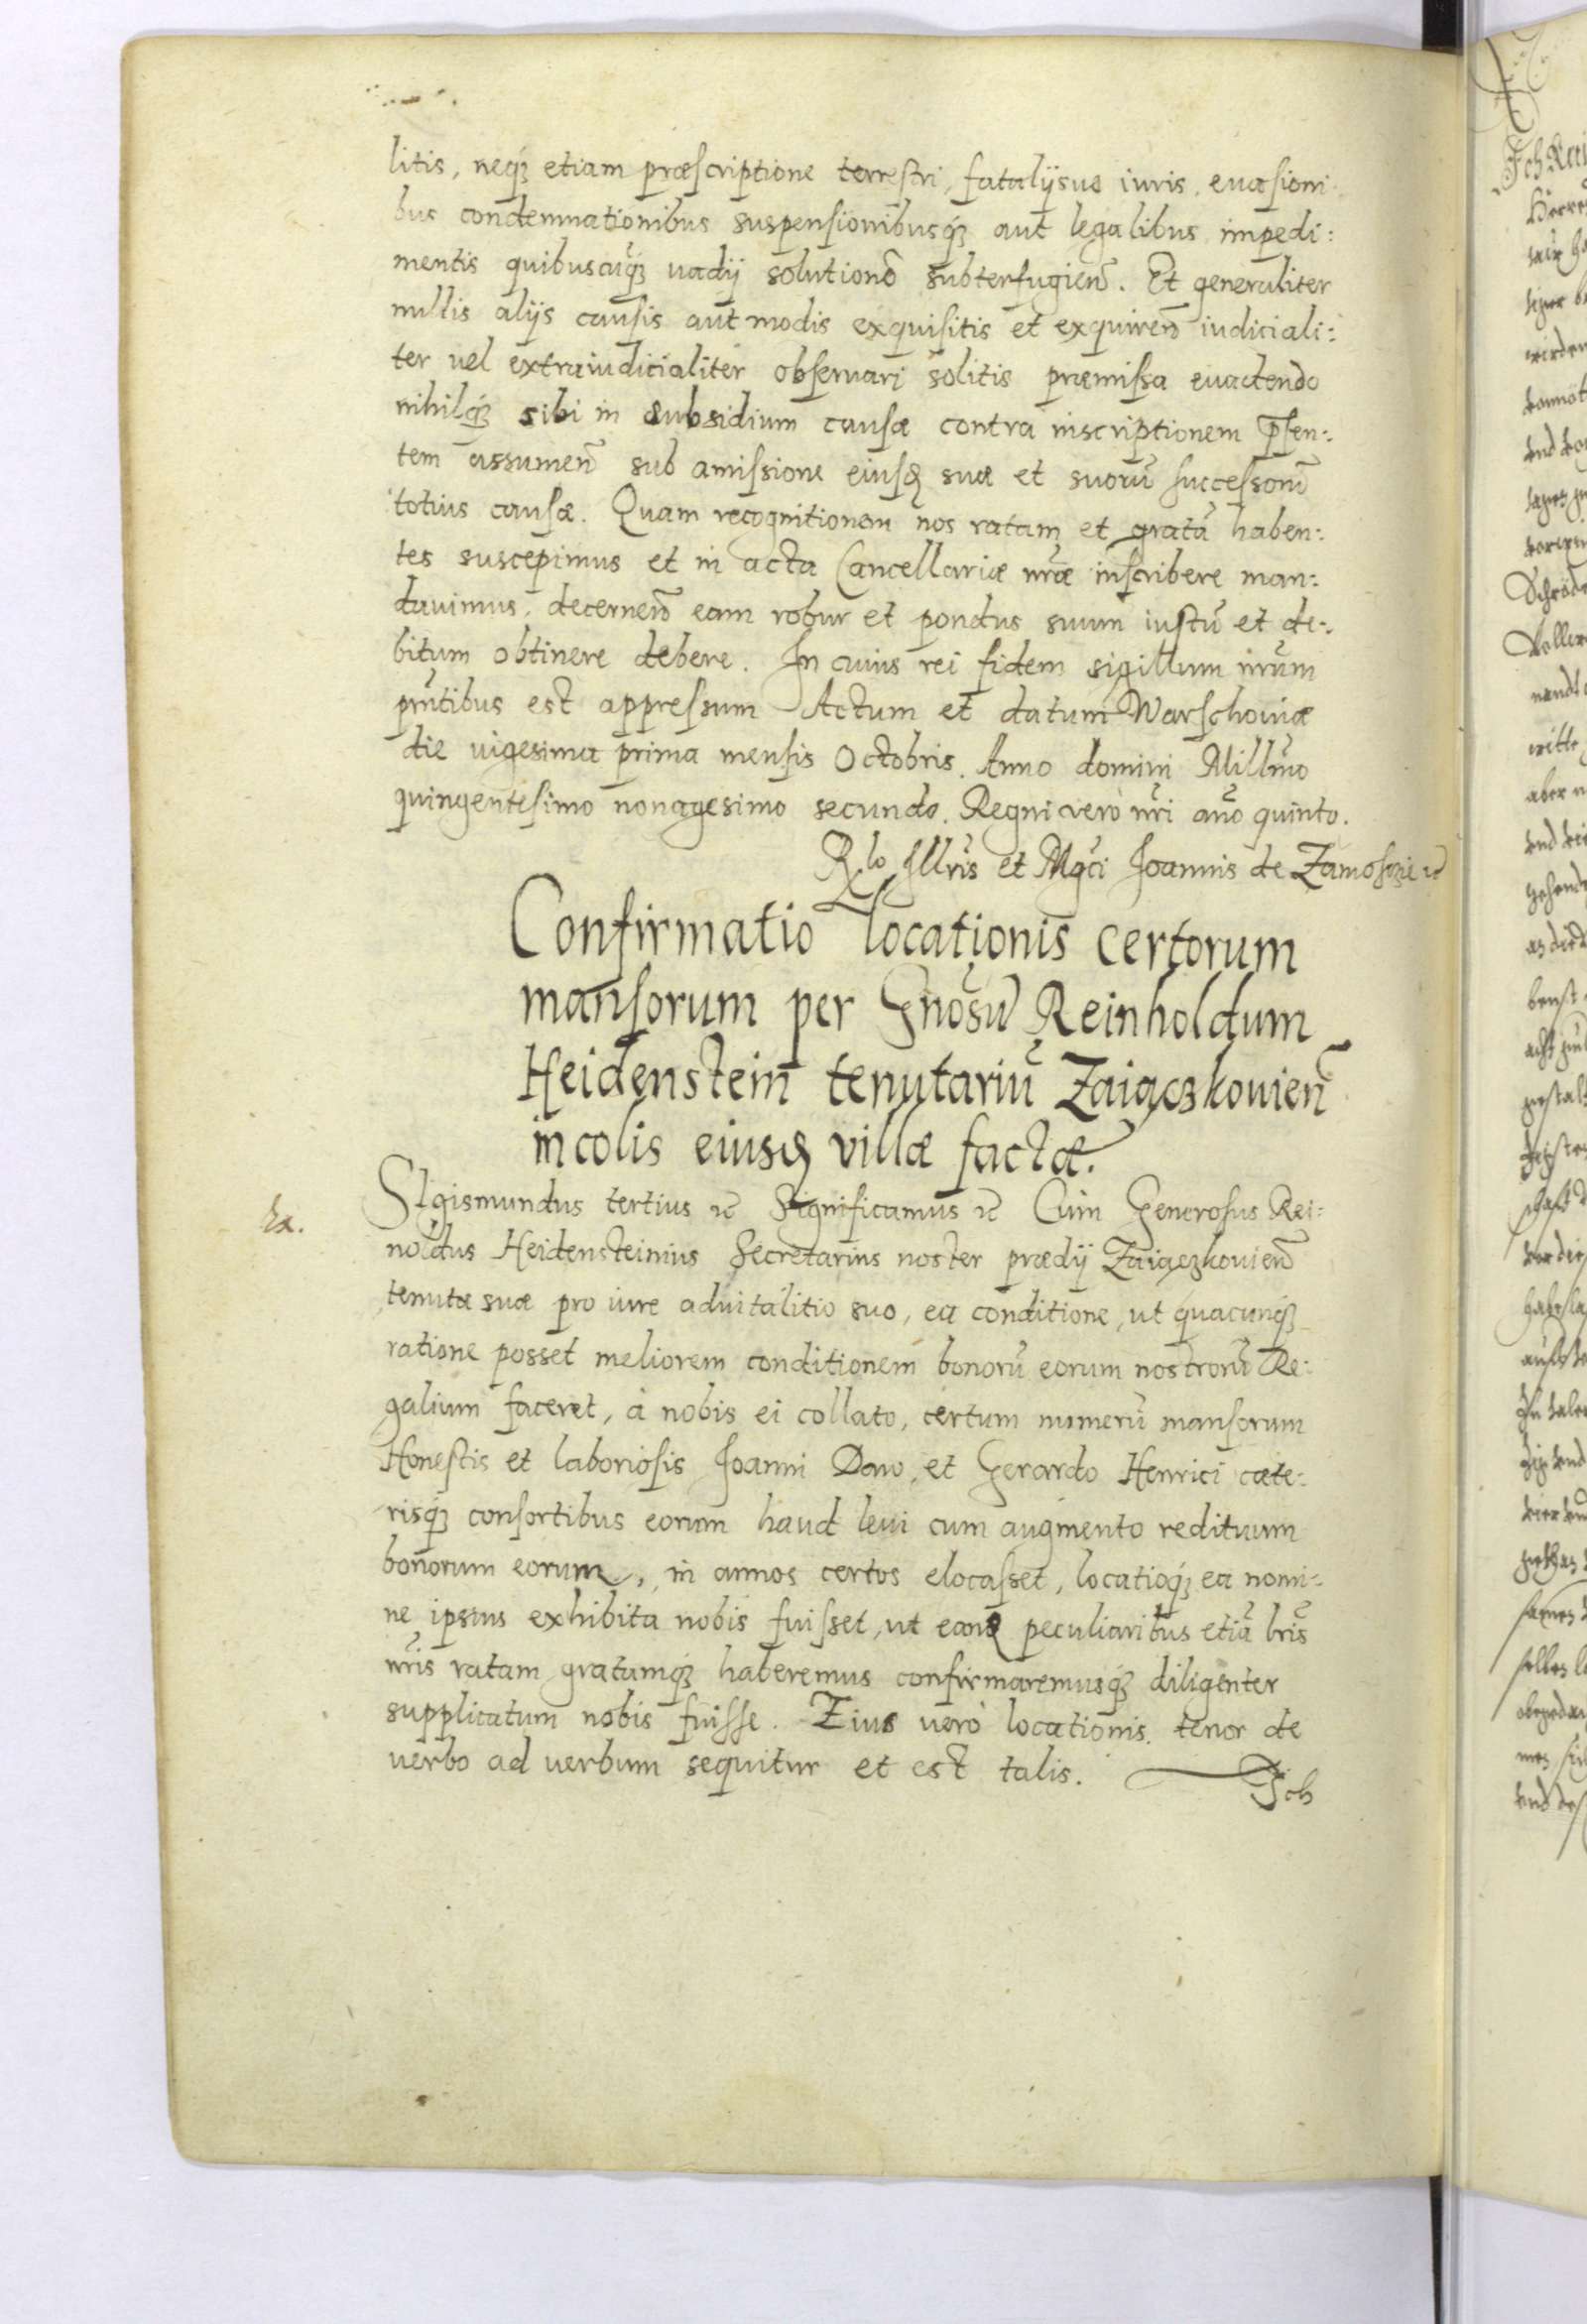 litis, neq́ꝫ etiam præscriptione terrestri, fatalijsue iuris, euasioni
bus condemnationibus suspensionibusq́ꝫ aut legalibus impedi:
mentis quibuscuq́ꝫ uadij solutionẽ subterfugieñ. Et generaliter
nullis alijs causis aut modis exquisitis et exquireñ iudiciali:
ter uel extraiudicialiter obseruari solitis præmissa euadendo
nihilq́ꝫ sibi in subsidium causæ contra inscriptionem p̃sen:
tem assumeñ sub amissione eiusd suæ et suorũ successorũ
totius causæ. Quam recognitionem nos ratam et gratã haben:
tes suscepimus et in acta Cancellariæ nr̃æ inscribere man:
dauimus, decerneñ eam robur et pondus suum iustũ et de:
bitum obtinere debere. In cuius rei fidem sigillum nr̃um
pñtibus est appressum Actum et datum Warschouiæ
die uigesima prima mensis Octobris. Anno domini Mill̃mo
quingentesimo nonagesimo secundo. Regni uerò nr̃i anõ quinto.
Rlo Illris et Mgci Joannis de Zamoscie ꝛc̃
Confirmatio locationis certorum
mansorum per Gnõsũ Reinholdum
Heidenstein tenutariũ Zaiączkouieñ
incolis eiusd villæ factæ.
SIgismundus tertius ꝛc̃ Significamus ꝛc̃ Cum Generosus Rei:
noldus Heidensteinius Secretarius noster prædij Zaiączkouieñ
tenutæ suæ pro iure aduitalitio suo, ea conditione, ut quacunq́ꝫ
ratione posset meliorem conditionem bonorũ eorum nostrorũ Re:
galium faceret, à nobis ei collato, certum numerũ mansorum
Honestis et laboriosis Joanni Daw, et Gerardo Henrici cæte:
risq́ꝫ consortibus eorum haud leui cum augmento redituum
bonorum eorum, in annos certos elocasset, locatioq́ꝫ ea nomi:
ne ipsius exhibita nobis fuisset, ut eand peculiaribus etiã lris
nr̃is ratam gratamq́ꝫ haberemus confirmaremusq́ꝫ diligenter
supplicatum nobis fuisse. Eius uerò locationis tenor de
uerbo ad uerbum sequitur et est talis.
Ich